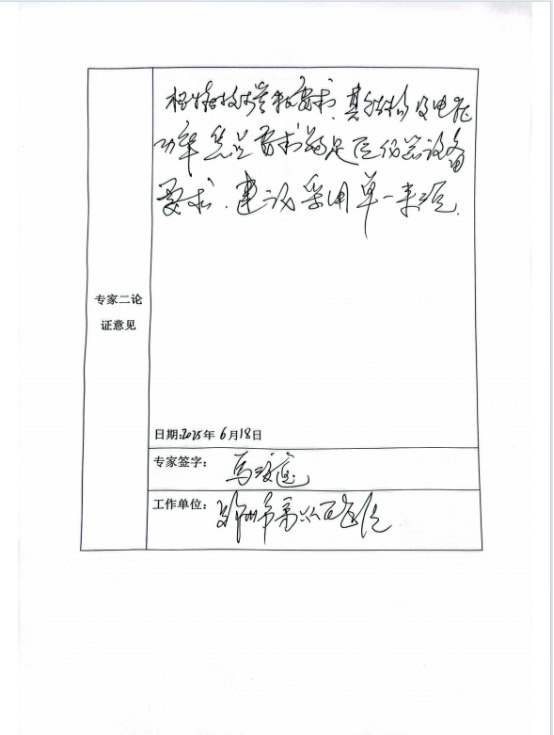 根据技术参数要求,其结构及电能
功率 要求满足医疗器设备
要求.建议采用单一来源.
专家二论
证意见
日期:2025年6月18日
专家签字:马
工作单位:郑州市第六人民医院